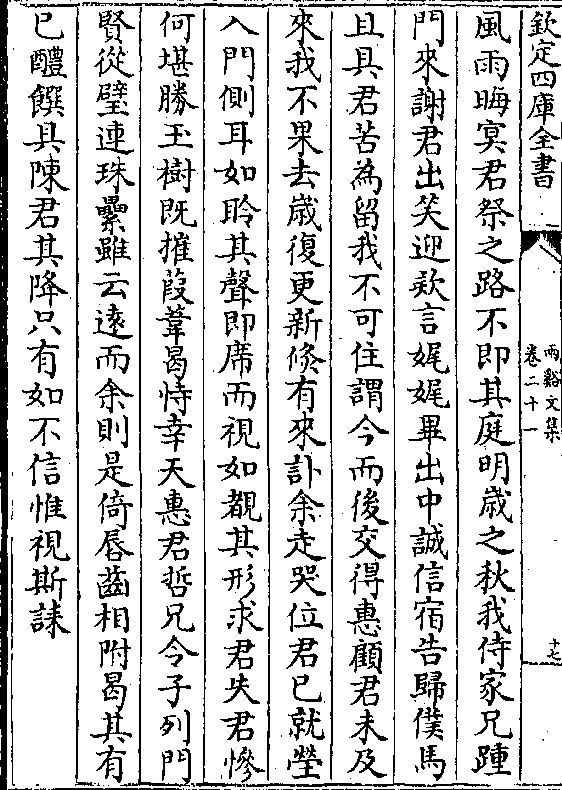 欽定四庫全書
兩谿文集
卷二十一
十七
風雨晦冥君祭之路不即其庭明歳之秋我侍家兄踵
門來謝君出笑迎欵言娓娓畢出中誠信宿告歸僕馬
且具君苦為留我不可住謂今而後交得惠顧君未及
來我不果去歳復更新倐有來訃余走哭位君已就塋
入門側耳如聆其聲即席而視如覩其形求君失君慘
何堪勝玉樹既摧葭葦曷恃幸天惠君哲兄令子列門
賢從璧連珠纍雖云逺而余則是倚唇齒相附曷其有
已醴饌具陳君其降只有如不信惟視斯誄